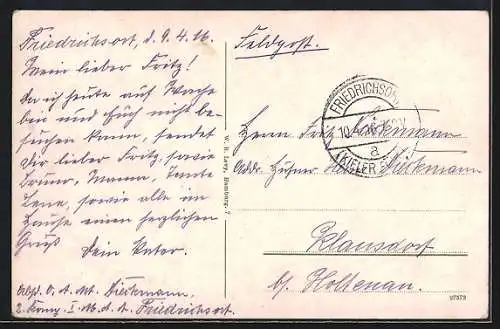 Friedrichsort, d. 9. 4. 16.
Mein lieber Fritz!
Da ich heute auf Wache
bin und Euch nicht be-
suchen kann, sendet
Dir lieber Fritz, sowie
Mama, Tante
Lene, sowie alle im
Hause einen herzlichen
Gruß
Dein Vater.
Absd. O. A. Mt. Dieckmann,
2. Komp. I. M. A. A. Friedrichsort.
W. R. Levy, Hamburg. 7
Feldpost.
FRIEDRICHSORT
10.4.16
a
(KIELER
Herrn Fritz Dieckmann
Addr. Hufner Dieckmann
Klausdorf
b/ Holtenau.